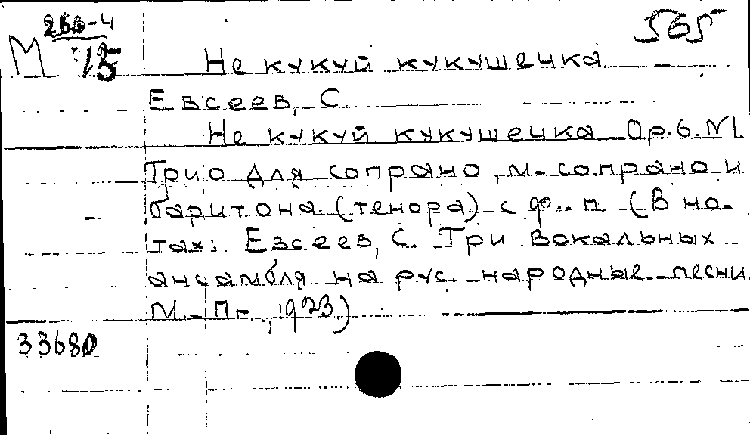 253-4 565
М 15
Не кукуй кукушечка
Евсеев, С.
Не кукуй кукушечка Op. 6. N1.
Трио для сопрано, м-сопрано и
баритона (тенора) с ф.-п. (В но-
тах: Евсеев, С. Три вокальных
ансамбля на рус. народные песни.
М.-П., 1923)
33680